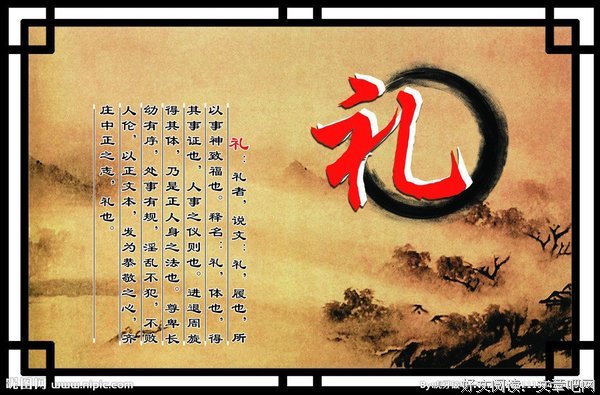 礼
礼：礼者，说文：礼，履也，所
以事神致福也。释名：礼，体也，得
其事证也，人事之仪则也。进退周旋
得其体，乃是正人身之法也。尊卑长
幼有序，处事有规，淫乱不犯，不败
人伦，以正文本，发为恭敬之心，齐
庄中正之志，礼也。
昵图网 www.nipic.com